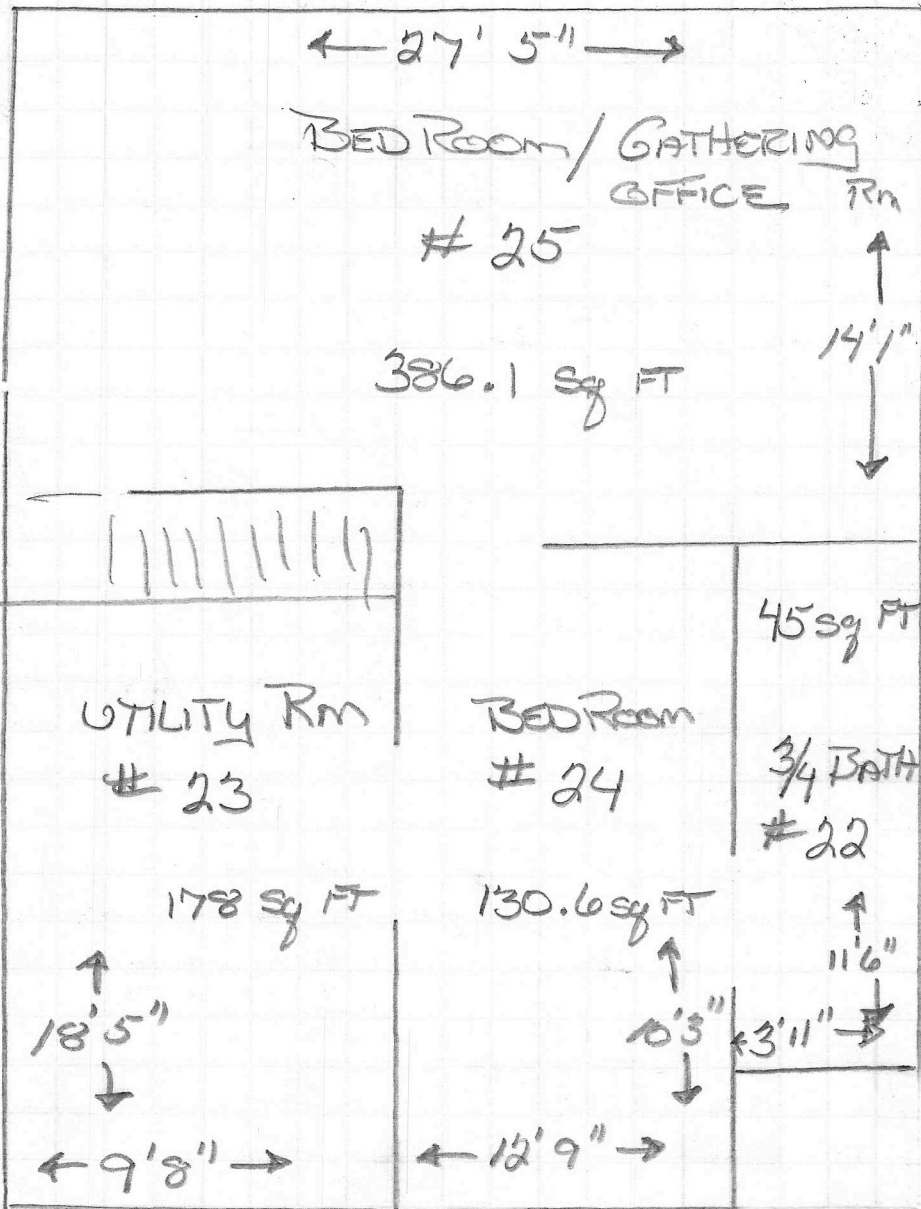 27' 5"
BEDROOM / GATHERING
OFFICE Rm
# 25
14'1"
386.1 Sq FT
45 Sq FT
UTILITY Rm
# 23
BEDROOM
# 24
3/4 BATH
# 22
178 Sq FT
130.6 sq FT
11'6"
18'5"
10'3"
3'11"
9'8"
12'9"